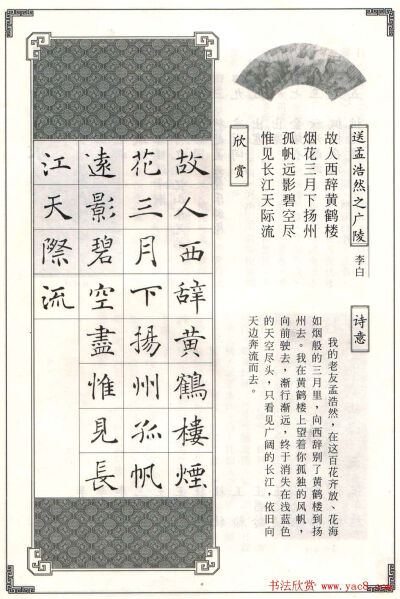 送孟浩然之广陵
李白
故人西辞黄鹤楼
烟花三月下扬州
孤帆远影碧空尽
惟见长江天际流
诗意
我的老友孟浩然，在这百花齐放、花海
如烟般的三月里，向西辞别了黄鹤楼到扬
州去。我在黄鹤楼上望着你孤独的风帆，
向前驶去，渐行渐远，终于消失在浅蓝色
的天空尽头，只看见广阔的长江，依旧向
天边奔流而去。
欣赏
故人西辞黄鶴樓煙
花三月下揚州孤帆
遠影碧空盡惟見長
江天際流
书法欣赏 www.yac8.com